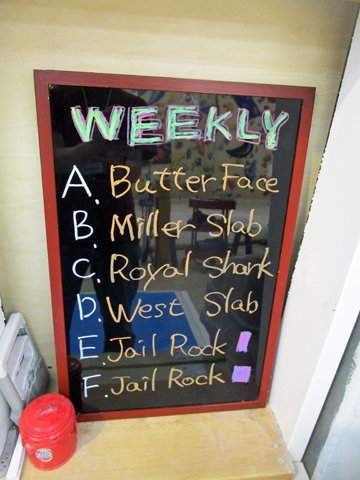 WEEKLY
A. Butter Face
B. Miller Slab
C. Royal Shank
D. West Slab
E. Jail Rock
F. Jail Rock